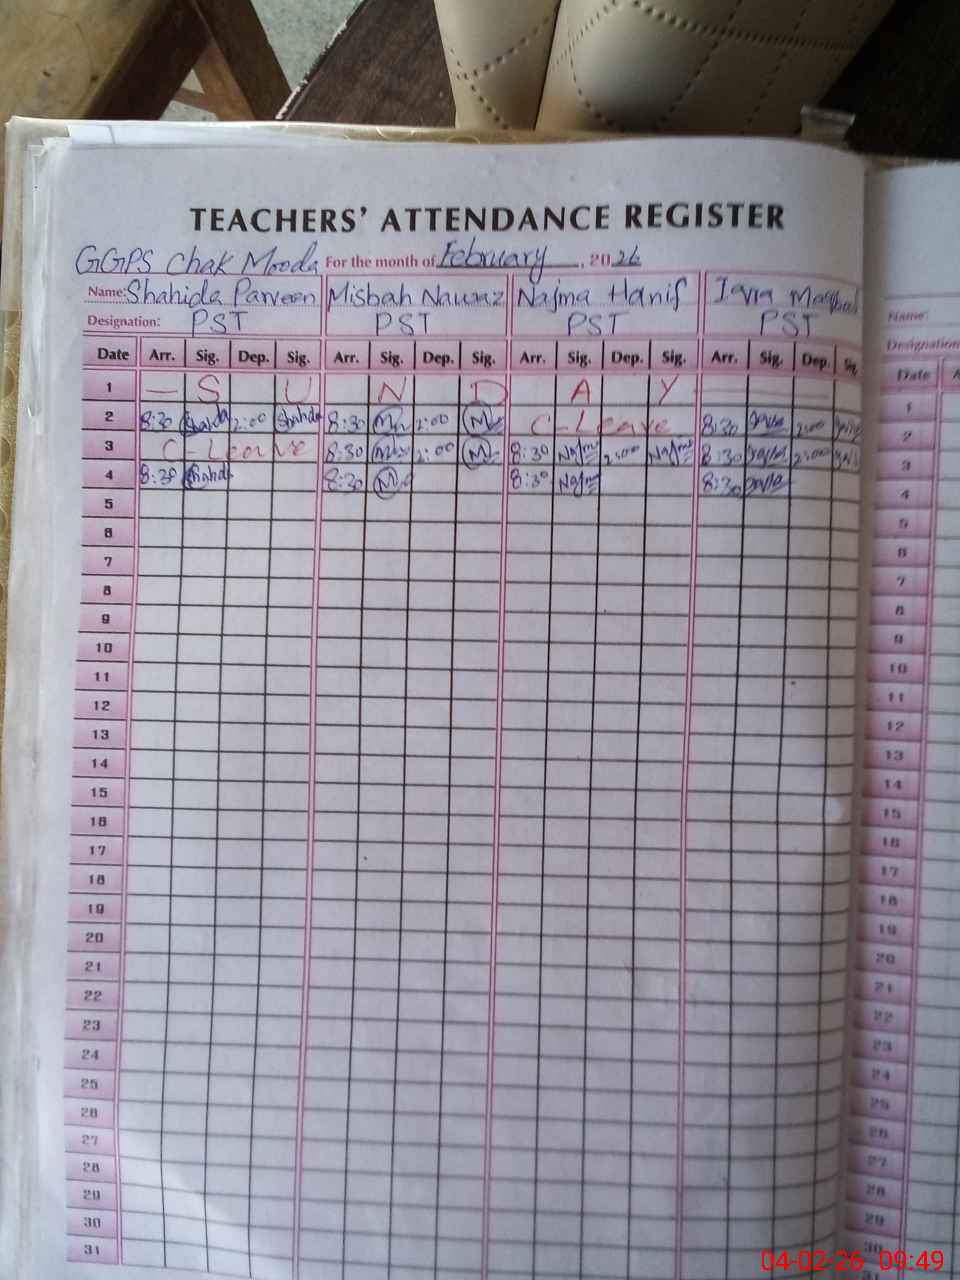 TEACHERS' ATTENDANCE REGISTER
GGPS Chak Mooda For the month of February, 2026
Name: Shahida Parveen Misbah Nawaz Najma Hanif Name:
Designation: PST PST PST PST Designation
Date Arr. Sig. Dep. Sig. Arr. Sig. Dep. Sig. Arr. Sig. Dep. Sig. Arr. Sig. Dep. Sig. Date A
1 — S U N D A Y 1
2 8:30 Shahida 2:00 Shahida 8:30 M 2:00 M C-Leave 8:30 2:00 2
3 C-Leave 8:30 M 2:00 M 8:30 Najma 2:00 Najma 8:30 2:00 3
4 8:30 Shahida 8:30 M 8:30 Najma 8:30 4
5 5
6 6
7 7
8 8
9 9
10 10
11 11
12 12
13 13
14 14
15 15
16 16
17 17
18 18
19 19
20 20
21 21
22 22
23 23
24 24
25 25
26 26
27 27
28 28
29 29
30 30
31 31
04-02-26 09:49